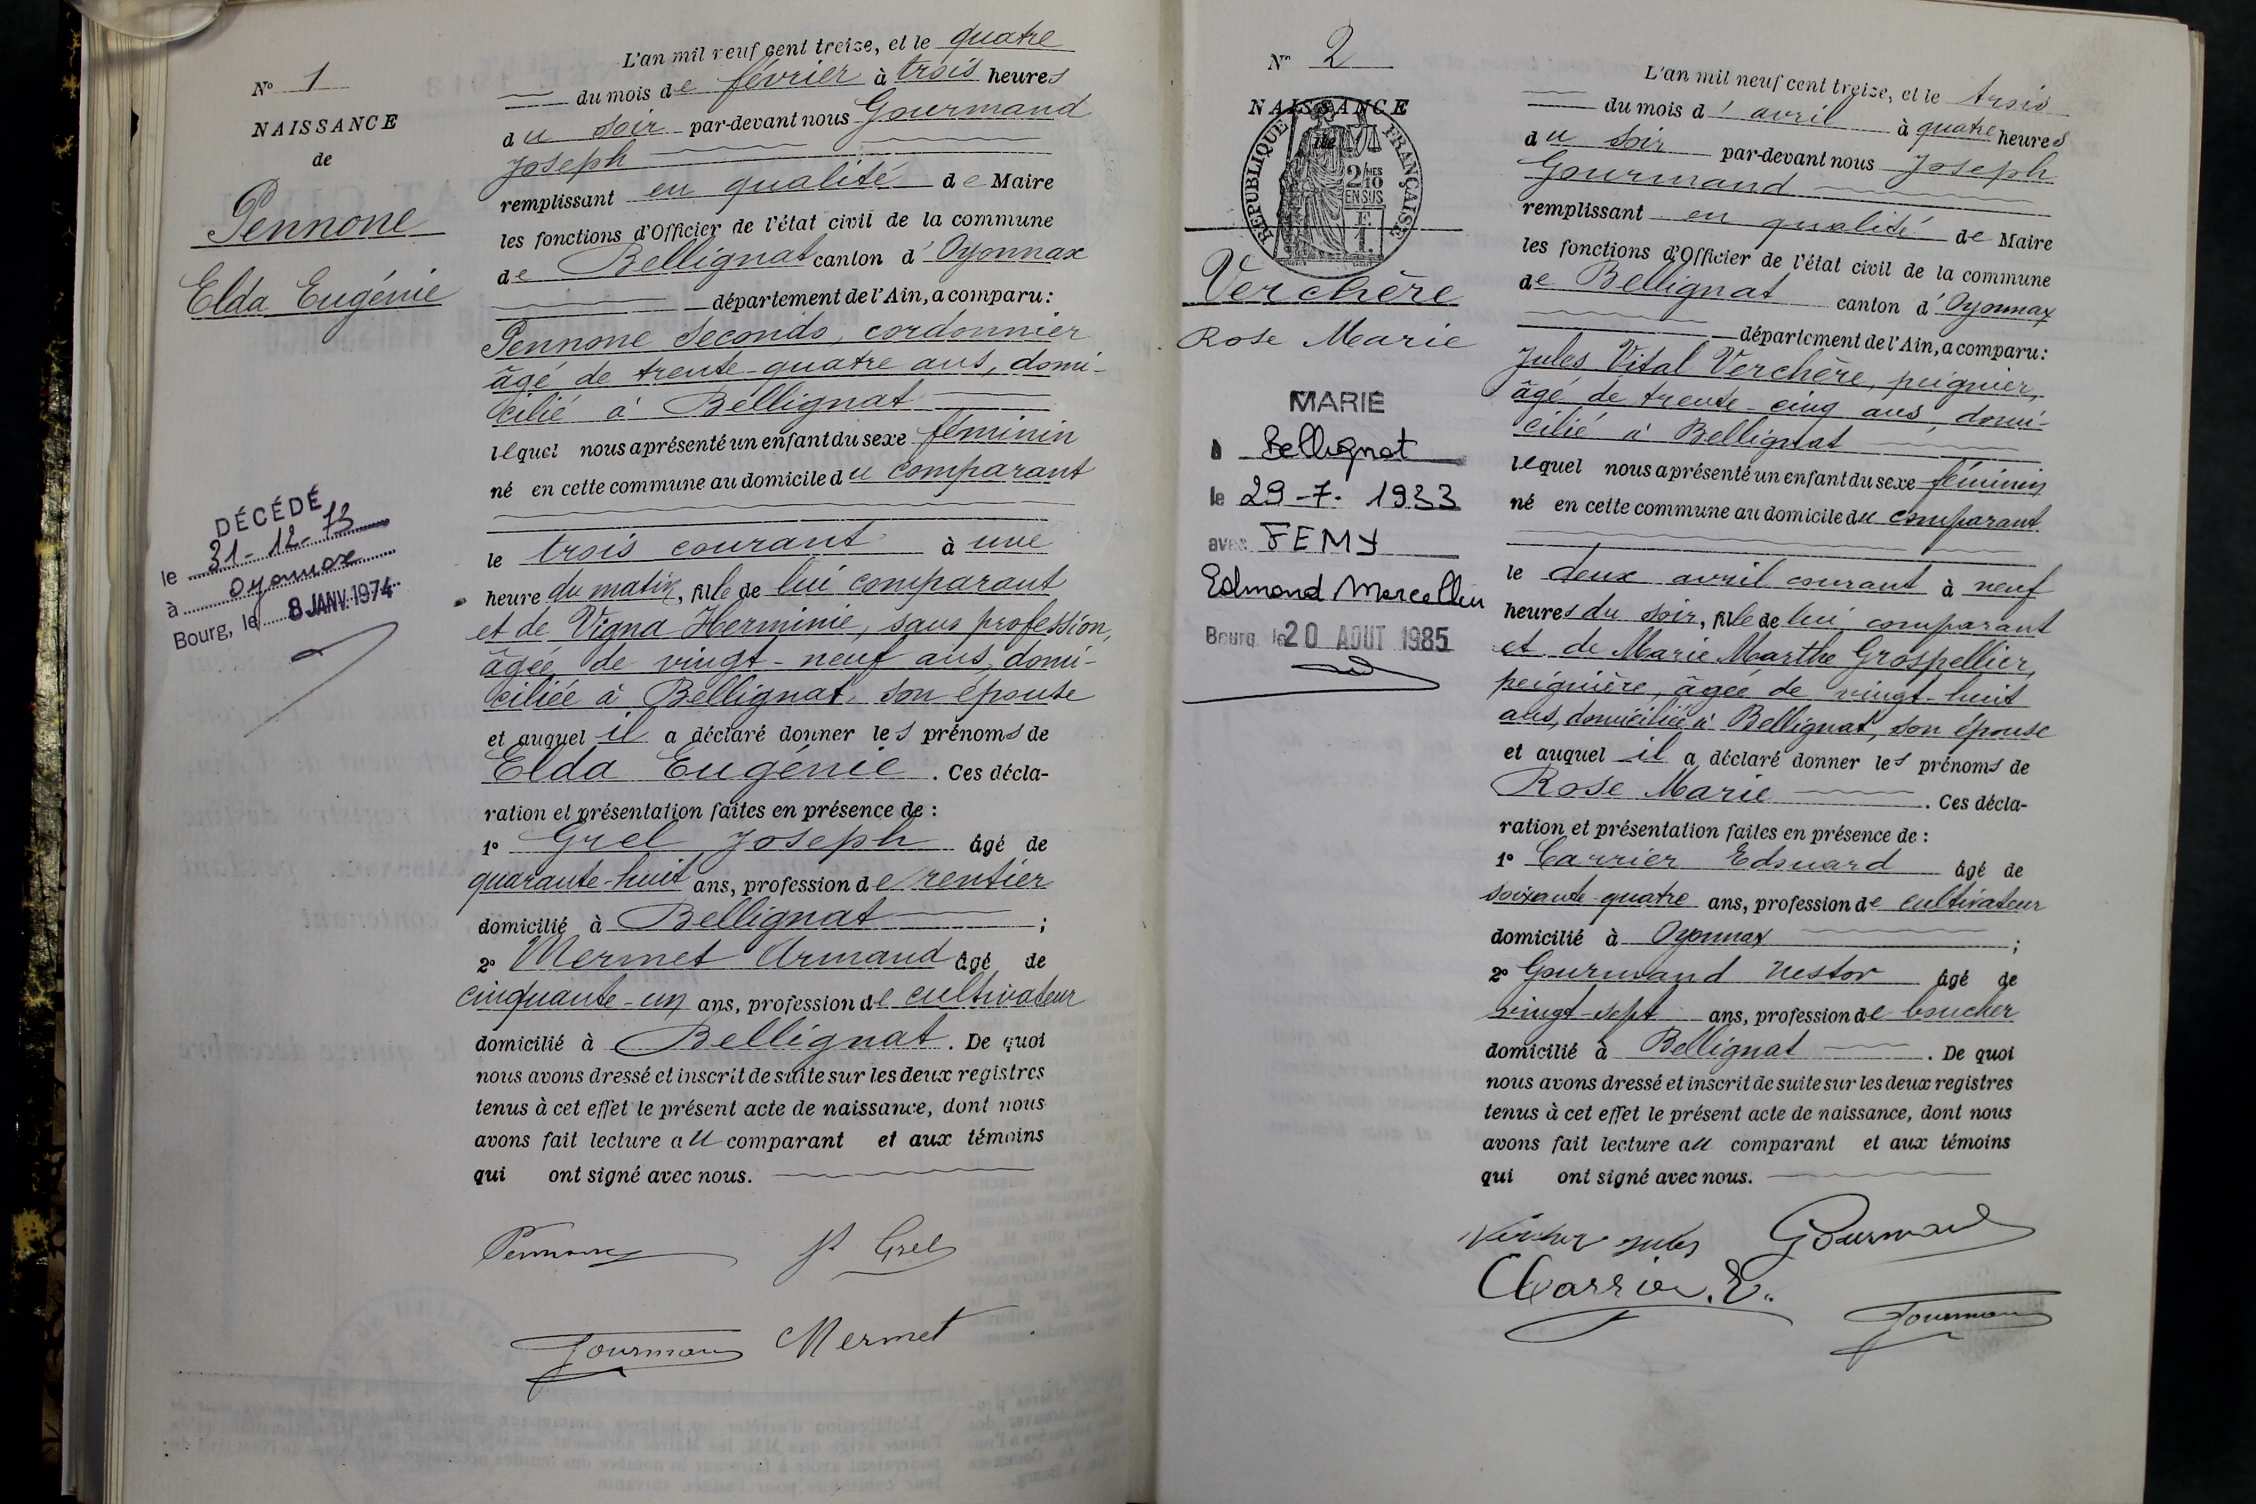 N° 1
NAISSANCE
de
Pennone
Elda Eugénie
DÉCÉDÉ
le 31-12-73
à Oyonnax
Bourg, le 8 JANV. 1974
L'an mil neuf cent treize, et le quatre
du mois de février à trois heures
du soir par-devant nous Gourmand
Joseph
remplissant en qualité de Maire
les fonctions d'Officier de l'état civil de la commune
de Bellignat canton d'Oyonnax
département de l'Ain, a comparu:
Pennone Secondo, cordonnier
âgé de trente-quatre ans, domi-
cilié à Bellignat
lequel nous a présenté un enfant du sexe féminin
né en cette commune au domicile du comparant
le trois courant à une
heure du matin, fille de lui comparant
et de Vigna Herminie, sans profession,
âgée de vingt-neuf ans, domi-
ciliée à Bellignat, son épouse
et auquel il a déclaré donner les prénoms de
Elda Eugénie. Ces décla-
ration et présentation faites en présence de :
1° Grel Joseph âgé de
quarante-huit ans, profession de rentier
domicilié à Bellignat ;
2° Mermet Armand âgé de
cinquante-un ans, profession de cultivateur
domicilié à Bellignat. De quoi
nous avons dressé et inscrit de suite sur les deux registres
tenus à cet effet le présent acte de naissance, dont nous
avons fait lecture au comparant et aux témoins
qui ont signé avec nous.
Pennone Jh Grel
Gourmand Mermet
N° 2
NAISSANCE
de
RÉPUBLIQUE FRANÇAISE
2/10MES
EN SUS
Verchère
Rose Marie
MARIÉ
à Bellignat
le 29-7-1933
avec FEMY
Edmond Marcellin
Bourg le 20 AOUT 1985
L'an mil neuf cent treize, et le trois
du mois d'avril à quatre heures
du soir par-devant nous Joseph
Gourmand
remplissant en qualité de Maire
les fonctions d'Officier de l'état civil de la commune
de Bellignat canton d'Oyonnax
département de l'Ain, a comparu:
Jules Vital Verchère, peignier,
âgé de trente-cinq ans, domi-
cilié à Bellignat
lequel nous a présenté un enfant du sexe féminin
né en cette commune au domicile du comparant
le deux avril courant à neuf
heures du soir, fille de lui comparant
et de Marie Marthe Grospellier,
peignière, âgée de vingt-huit
ans, domiciliée à Bellignat, son épouse
et auquel il a déclaré donner les prénoms de
Rose Marie. Ces décla-
ration et présentation faites en présence de :
1° Carrier Edouard âgé de
soixante-quatre ans, profession de cultivateur
domicilié à Oyonnax ;
2° Gourmand Nestor âgé de
vingt-sept ans, profession de boucher
domicilié à Bellignat. De quoi
nous avons dressé et inscrit de suite sur les deux registres
tenus à cet effet le présent acte de naissance, dont nous
avons fait lecture au comparant et aux témoins
qui ont signé avec nous.
Verchère Jules Gourmand
Carrier. E. Gourmand